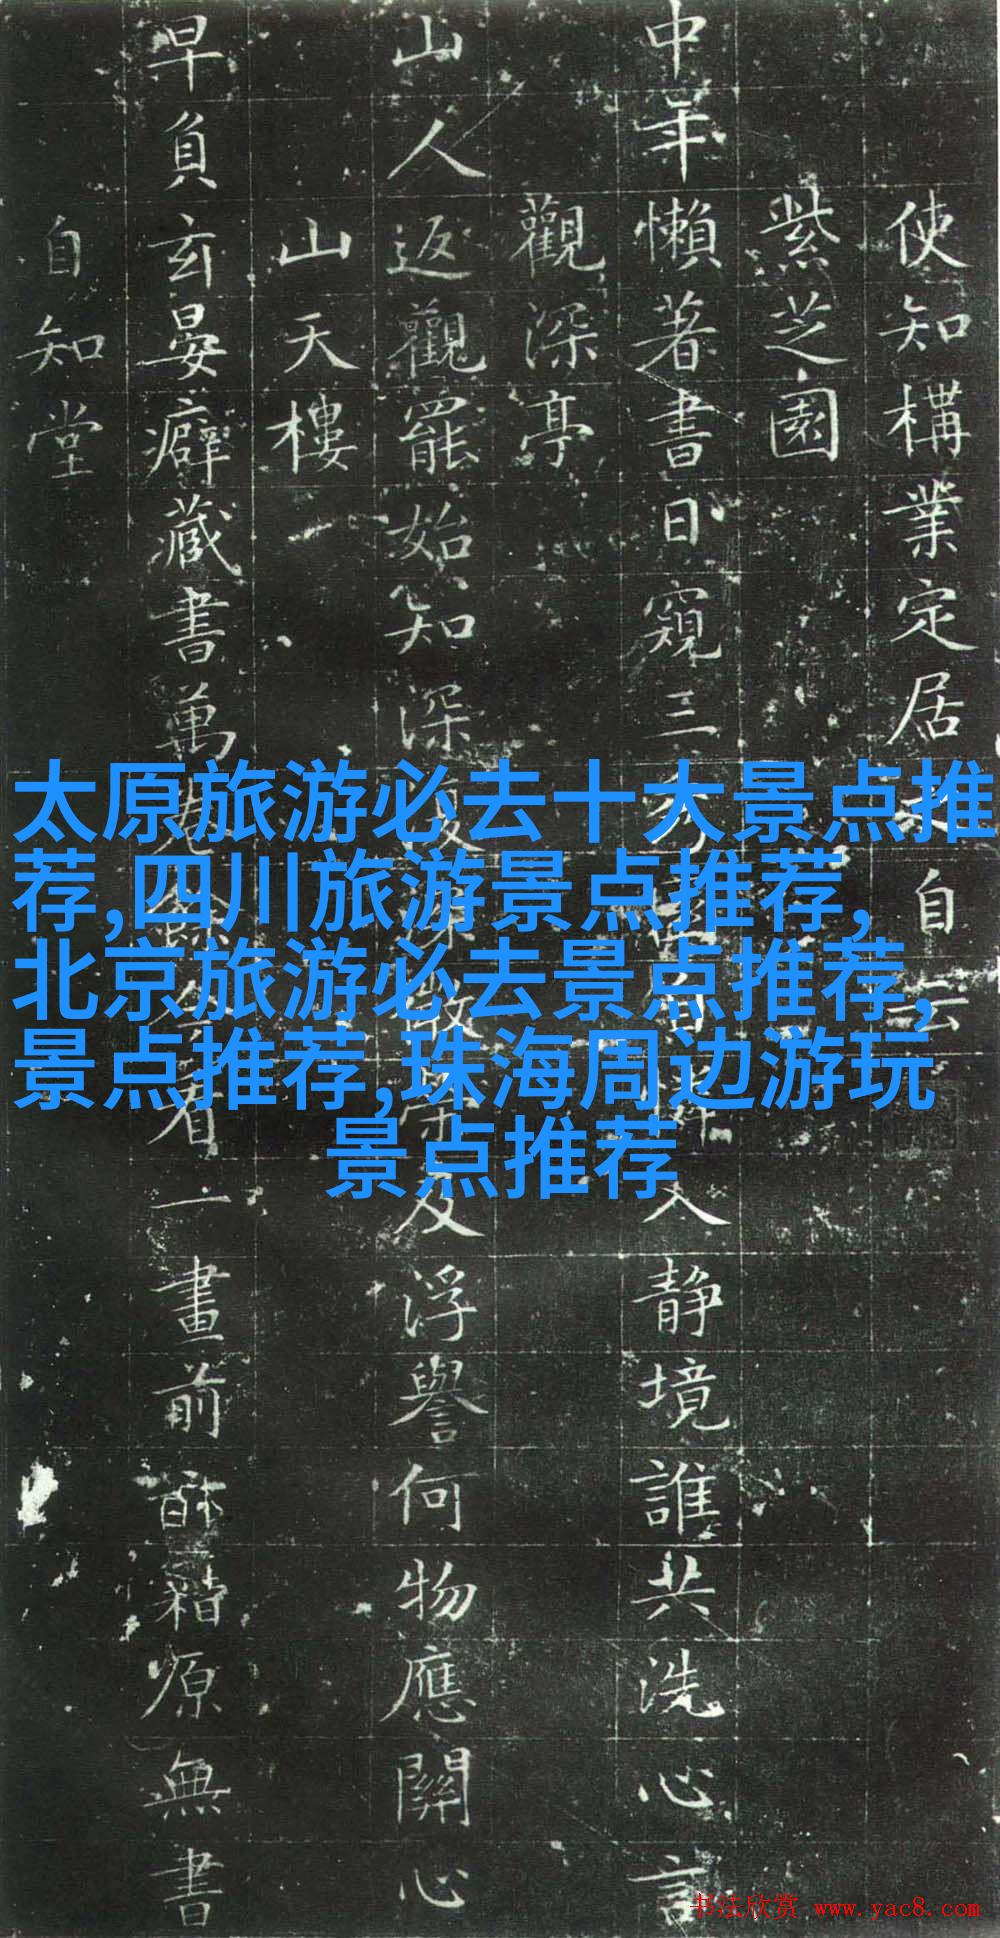 使知構業定居自云
紫芝園
中年懶著書日窺三靜境誰共洗心言
觀深亭
山人返觀罷始知深及浮譽何物應關心
山天樓
早負玄晏癖藏書萬看一畫前籍原無書
自知堂
太原旅游必去十大景点推
荐,四川旅游景点推荐,
北京旅游必去景点推荐,
景点推荐,珠海周边游玩
景点推荐
书法欣赏 www.yac8.com